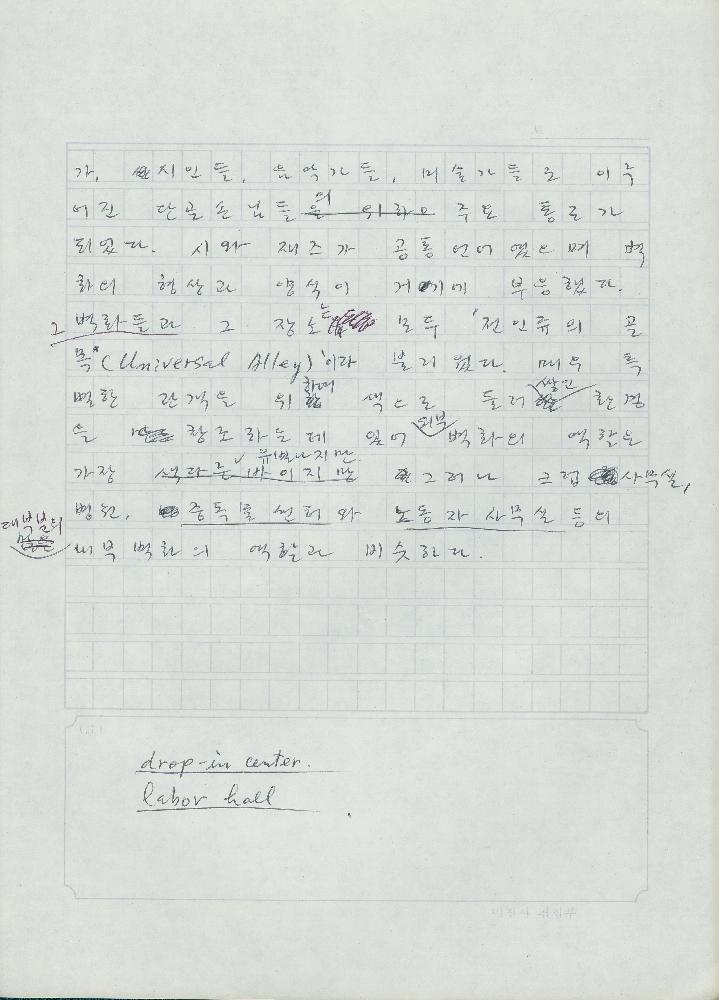 가, 시인들, 음악가들, 미술가들로 이루
어진 단골손님들의 을 위하고 주요 통로가
되었다. 시와 재즈가 공통언어였으며 벽
화의 형상과 양식이 거기에 부응했다.
그 벽화들과 그 장소는 모두 '전인류의 골
목'(Universal Alley)'이라 불리웠다. 매우 특
별한 관객을 위하여 색으로 둘러싸인 환경
을 창조하는데 있어 외부 벽화의 역할은
가장 색다른 바이지만 유별나지만 그러나 그럼 사무실,
병원, 중독물 센터와 노동자 사무실 등의
대부분의 내부벽화의 역할과 비슷하다.
drop-in center.
labor hall